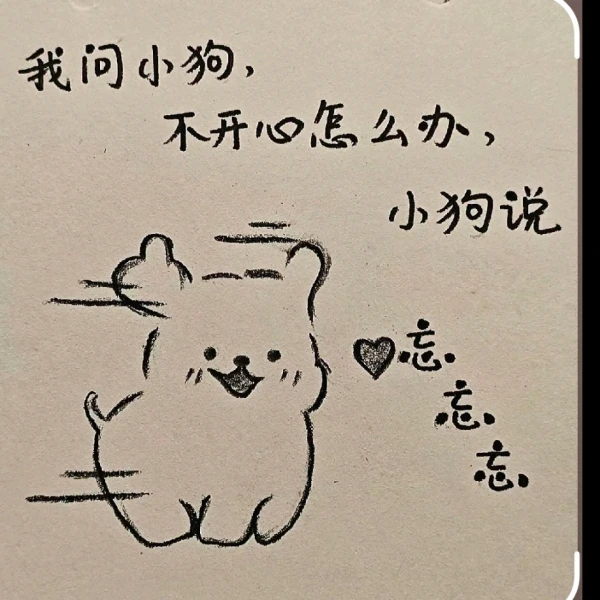 我问小狗，
不开心怎么办，
小狗说
忘.
忘.
忘.